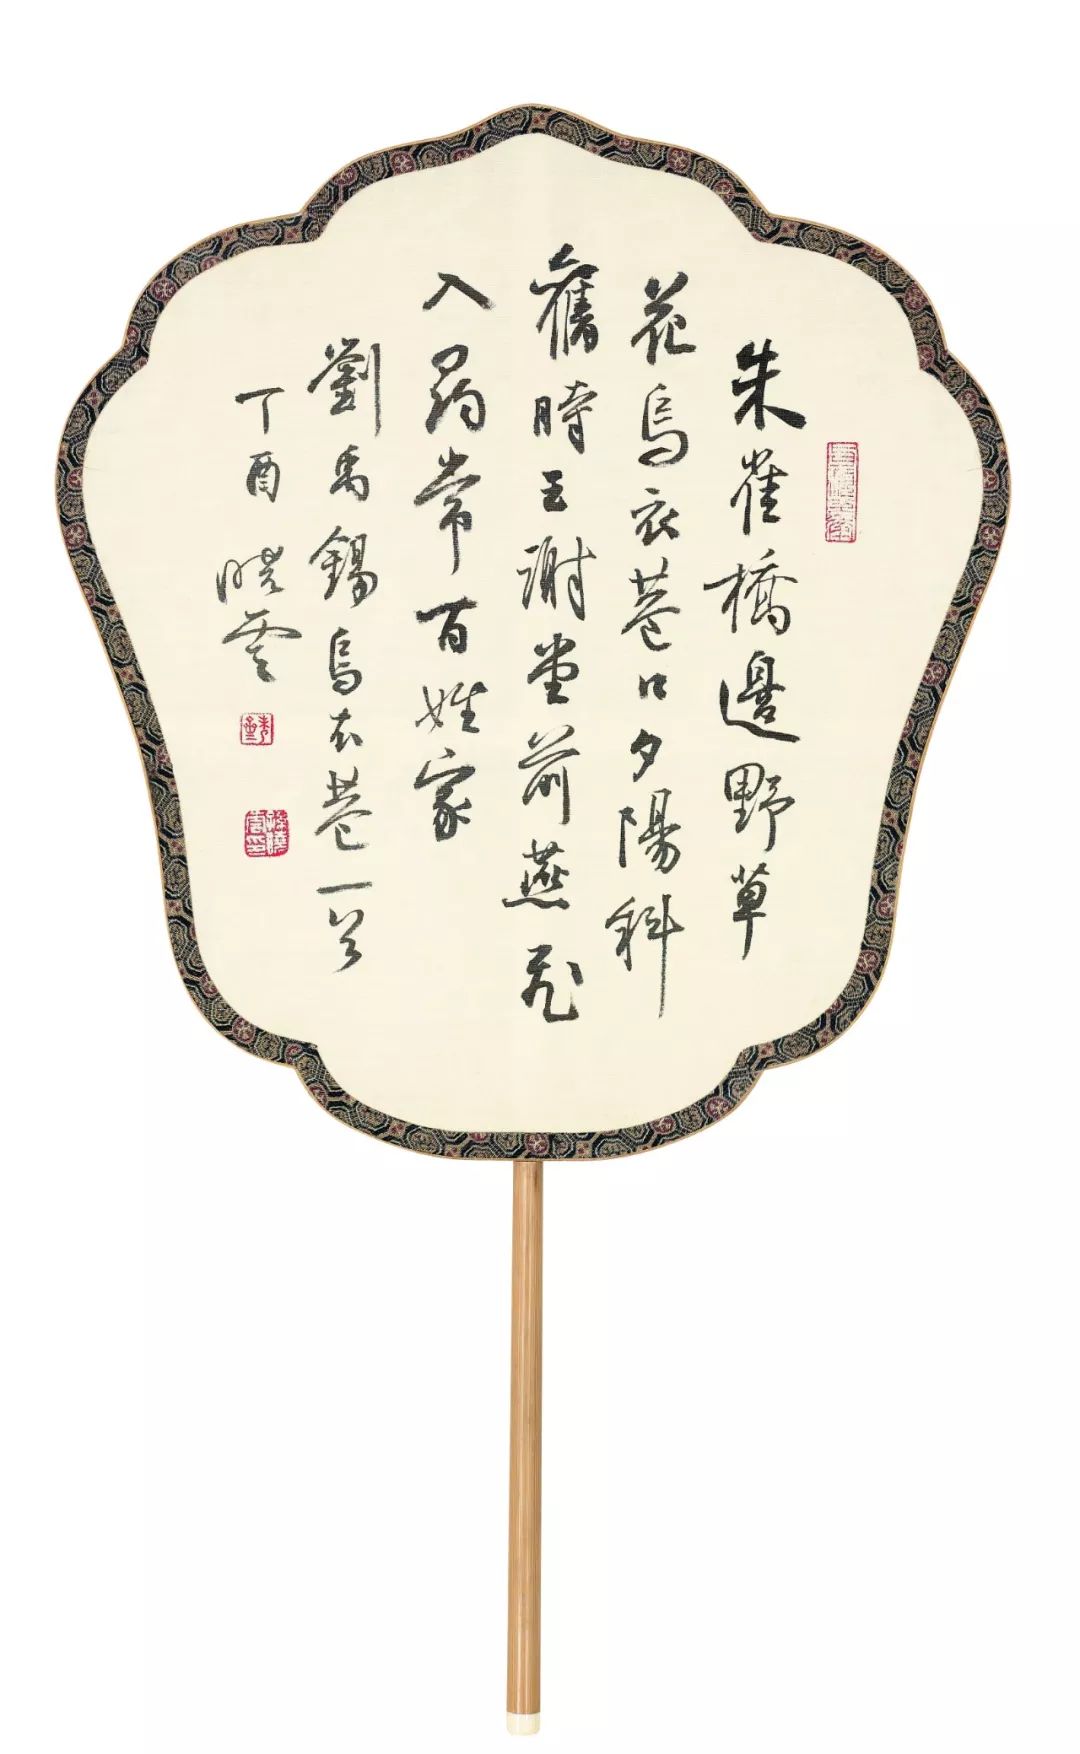 朱雀橋邊野草
花烏衣巷口夕陽斜
舊時王謝堂前燕飛
入尋常百姓家
劉禹錫烏衣巷一首
丁酉 曉雲